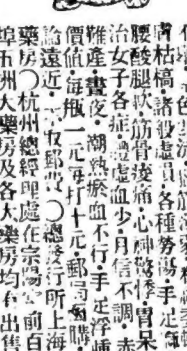 膚枯槁諸般虛損各種勞傷手足麻
腰酸腿軟筋骨痠痛心神驚悸胃呆
治女子各症體虛血少月信不調赤
難產晝夜潮熱瘀血不行手足浮腫
價值每瓶一元每打十元郵局函購
論遠近不取郵費〇總發行所上海
藥房〇杭州總經理處在宗陽 前百
埠五洲大藥房及各大藥房均有出售